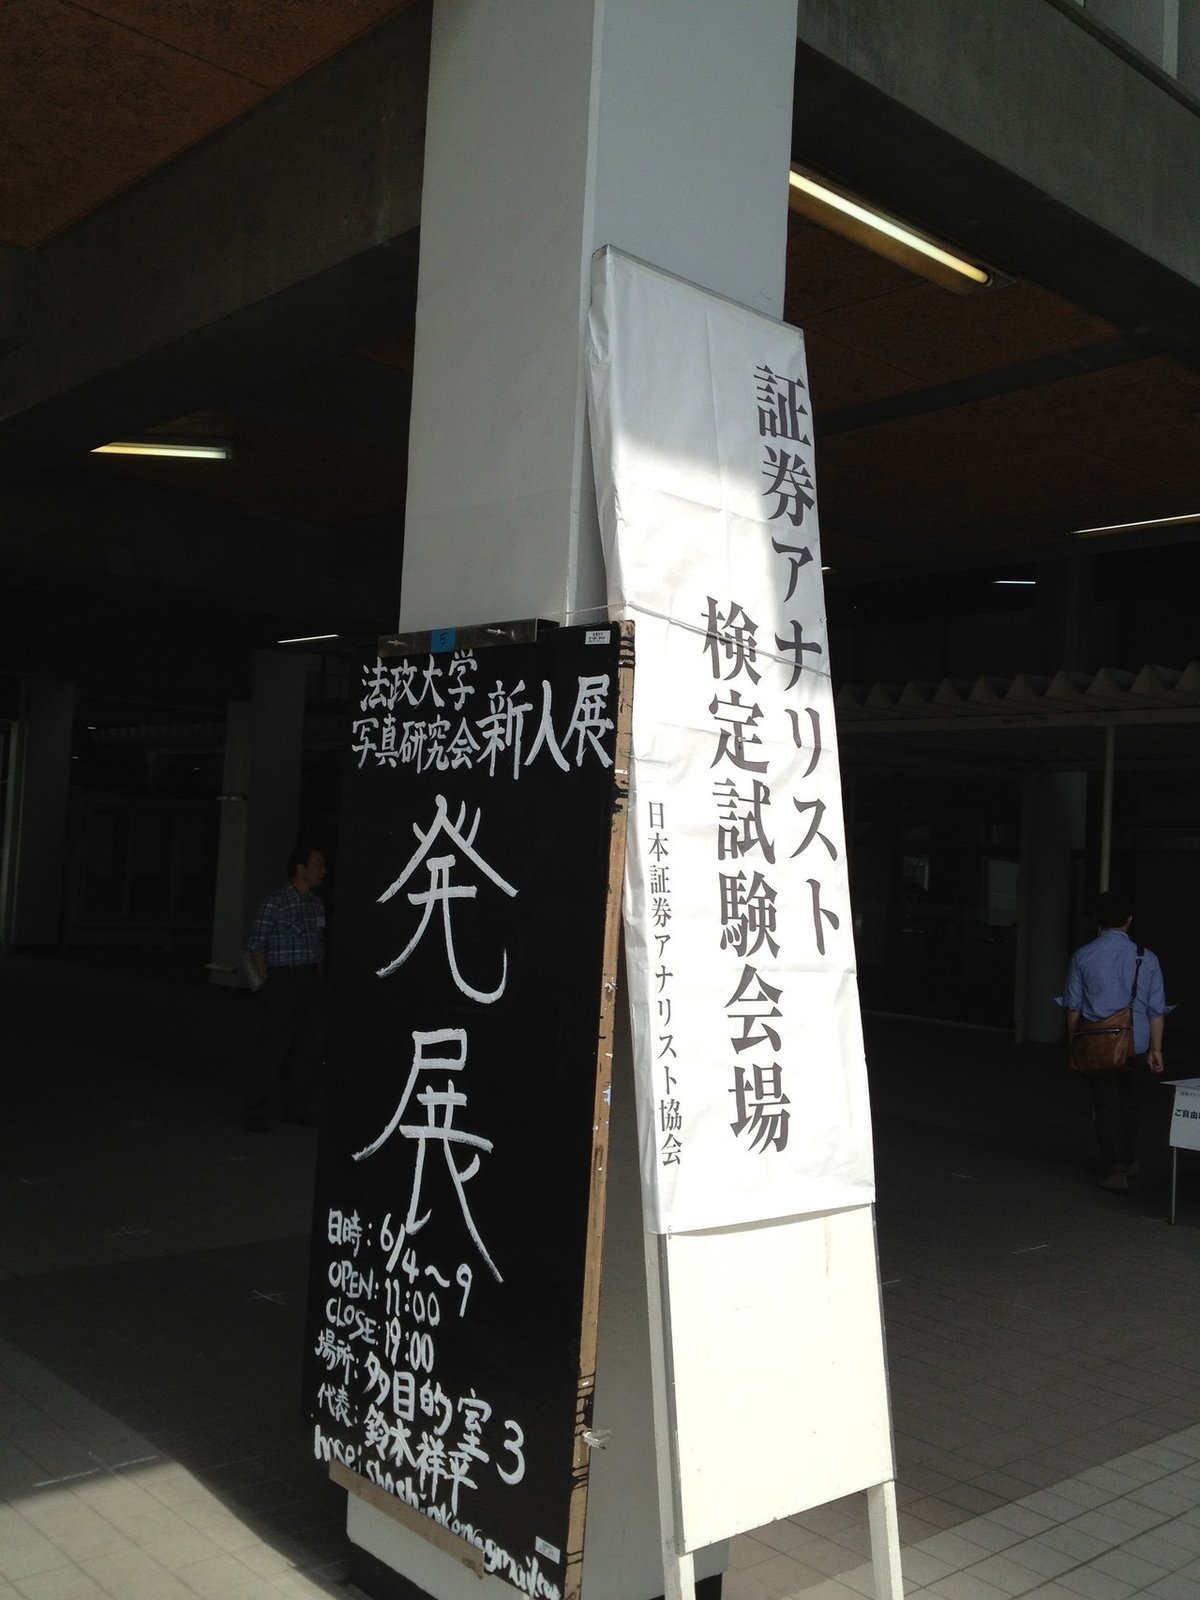 5
法政大学
写真研究会 新人展
発展
日時: 6/4～9
OPEN: 11:00
CLOSE: 19:00
場所: 多目的室3
代表: 鈴木祥平
証券アナリスト
検定試験会場
日本証券アナリスト協会
ご自由